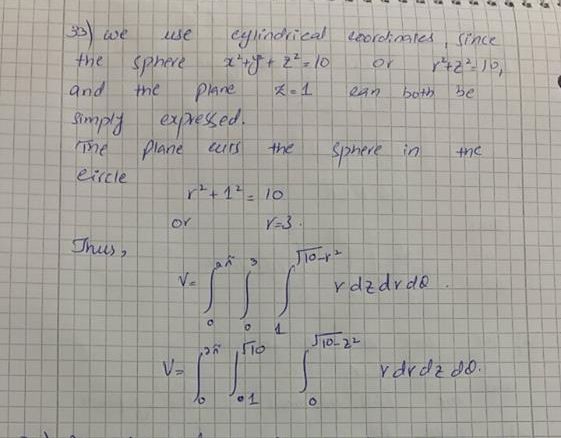 33) we use cylindrical coordinates, since
the sphere x²+y²+z²=10 or r²+z²=10,
and the plane z=1 can both be
simply expressed.
The plane cuts the sphere in the
circle
r²+1²=10
or r=3.
Thus,
V=∫₀^2π ∫₀^3 ∫₁^√10-r² r dz dr dθ.
V=∫₀^2π ∫₁^√10 ∫₀^√10-z² r dr dz dθ.